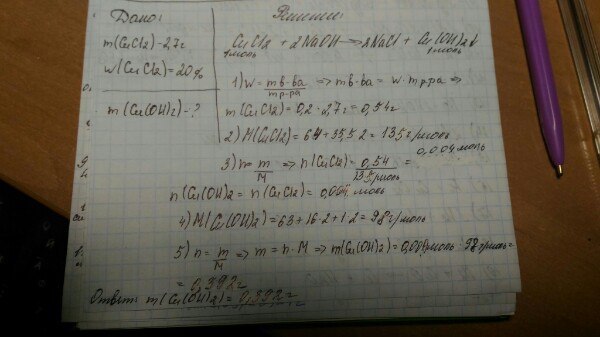 Дано:
m(CuCl2) = 27г
W(CuCl2) = 20%
m(Cu(OH)2) - ?
Решение:
CuCl2 + 2NaOH → 2NaCl + Cu(OH)2↓
1моль 1моль
1) W = mв-ва/mр-ра => mв-ва = W·mр-ра =>
m(CuCl2) = 0,2·2,7г = 0,54г
2) M(CuCl2) = 64+35,5·2 = 135г/моль
3) n = m/M => n(CuCl2) = 0,54/135г/моль = 0,004моль
n(Cu(OH)2 = n(CuCl2) = 0,004 моль
4) M(Cu(OH)2) = 63+16·2+1·2 = 98г/моль
5) n = m/M => m = n·M => m(Cu(OH)2) = 0,004моль·98г/моль =
= 0,392г
Ответ: m(Cu(OH)2) = 0,392г